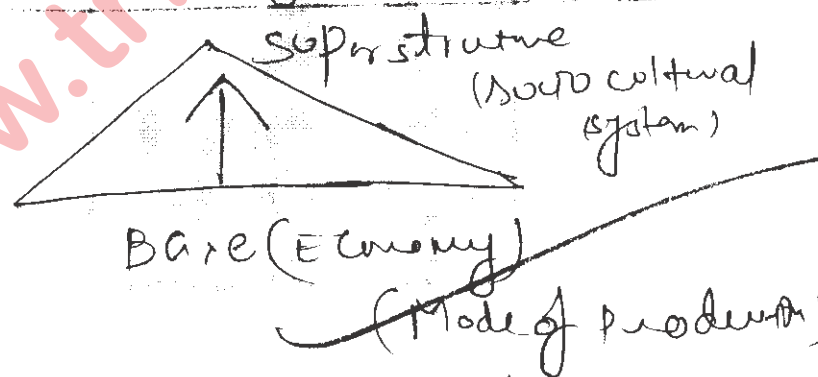 w.tr
superstructure
(socio cultural
system)
Base (Economy)
(Mode of Production)